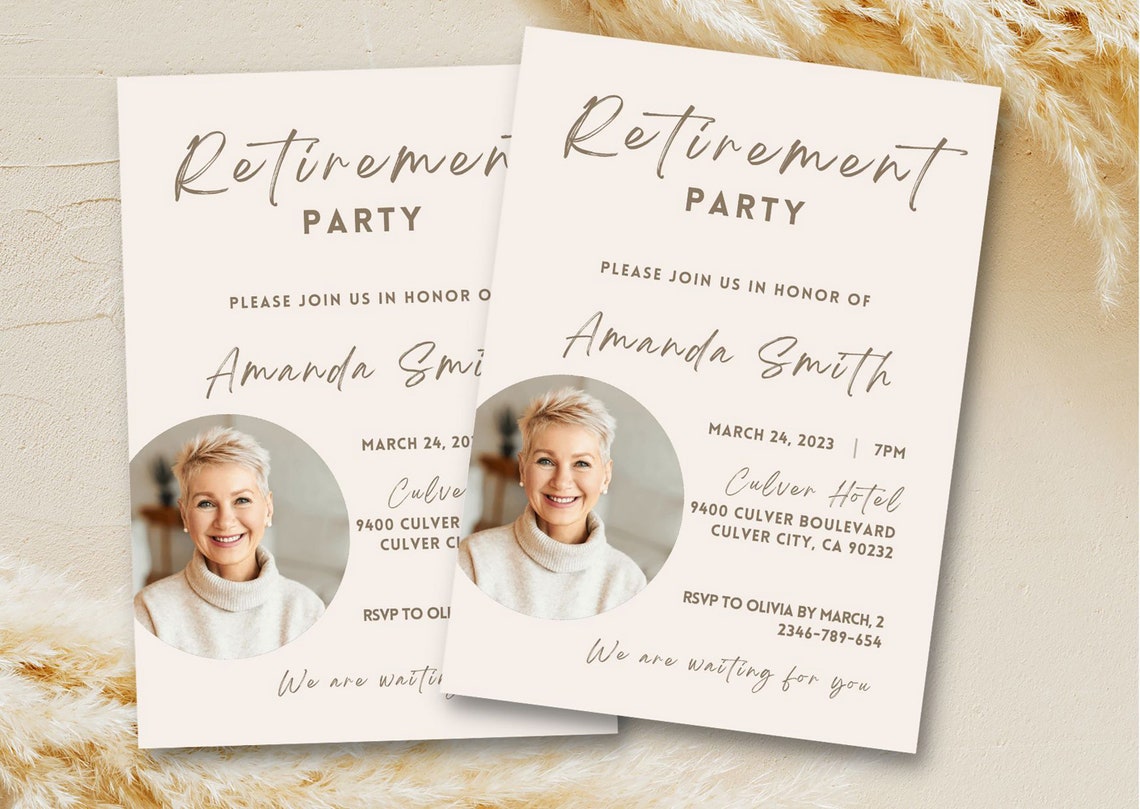 Retirement
PARTY
PLEASE JOIN US IN HONOR
Amanda
MARCH 24,
9400 CULVER
CULVER
RSVP TO
We are
Retirement
PARTY
PLEASE JOIN US IN HONOR OF
Amanda Smith
MARCH 24, 2023 | 7PM
Culver Hotel
9400 CULVER BOULEVARD
CULVER CITY, CA 90232
RSVP TO OLIVIA BY MARCH, 2
2346-789-654
We are waiting for you